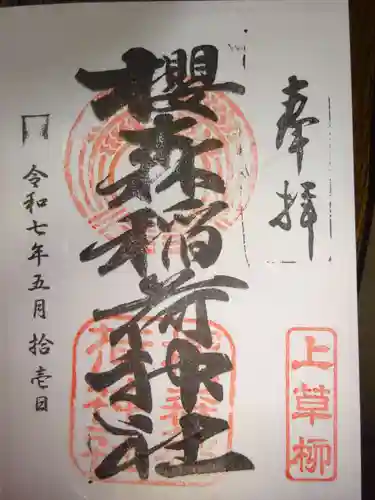 奉拝
櫻森稲荷神社
上草柳
令和七年五月拾壱日